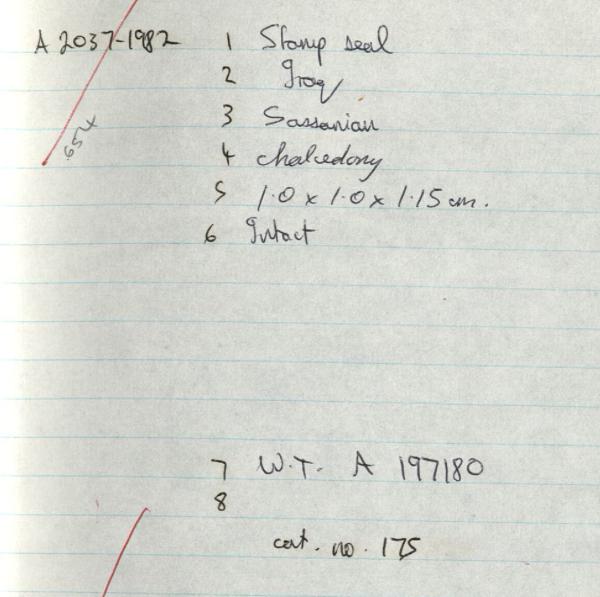 A 2037-1982 1 Stamp seal
2 Iraq
3 Sassanian
654
4 chalcedony
5 1.0 x 1.0 x 1.15 cm.
6 Intact
7 W.T. A 197180
8
cat. no. 175